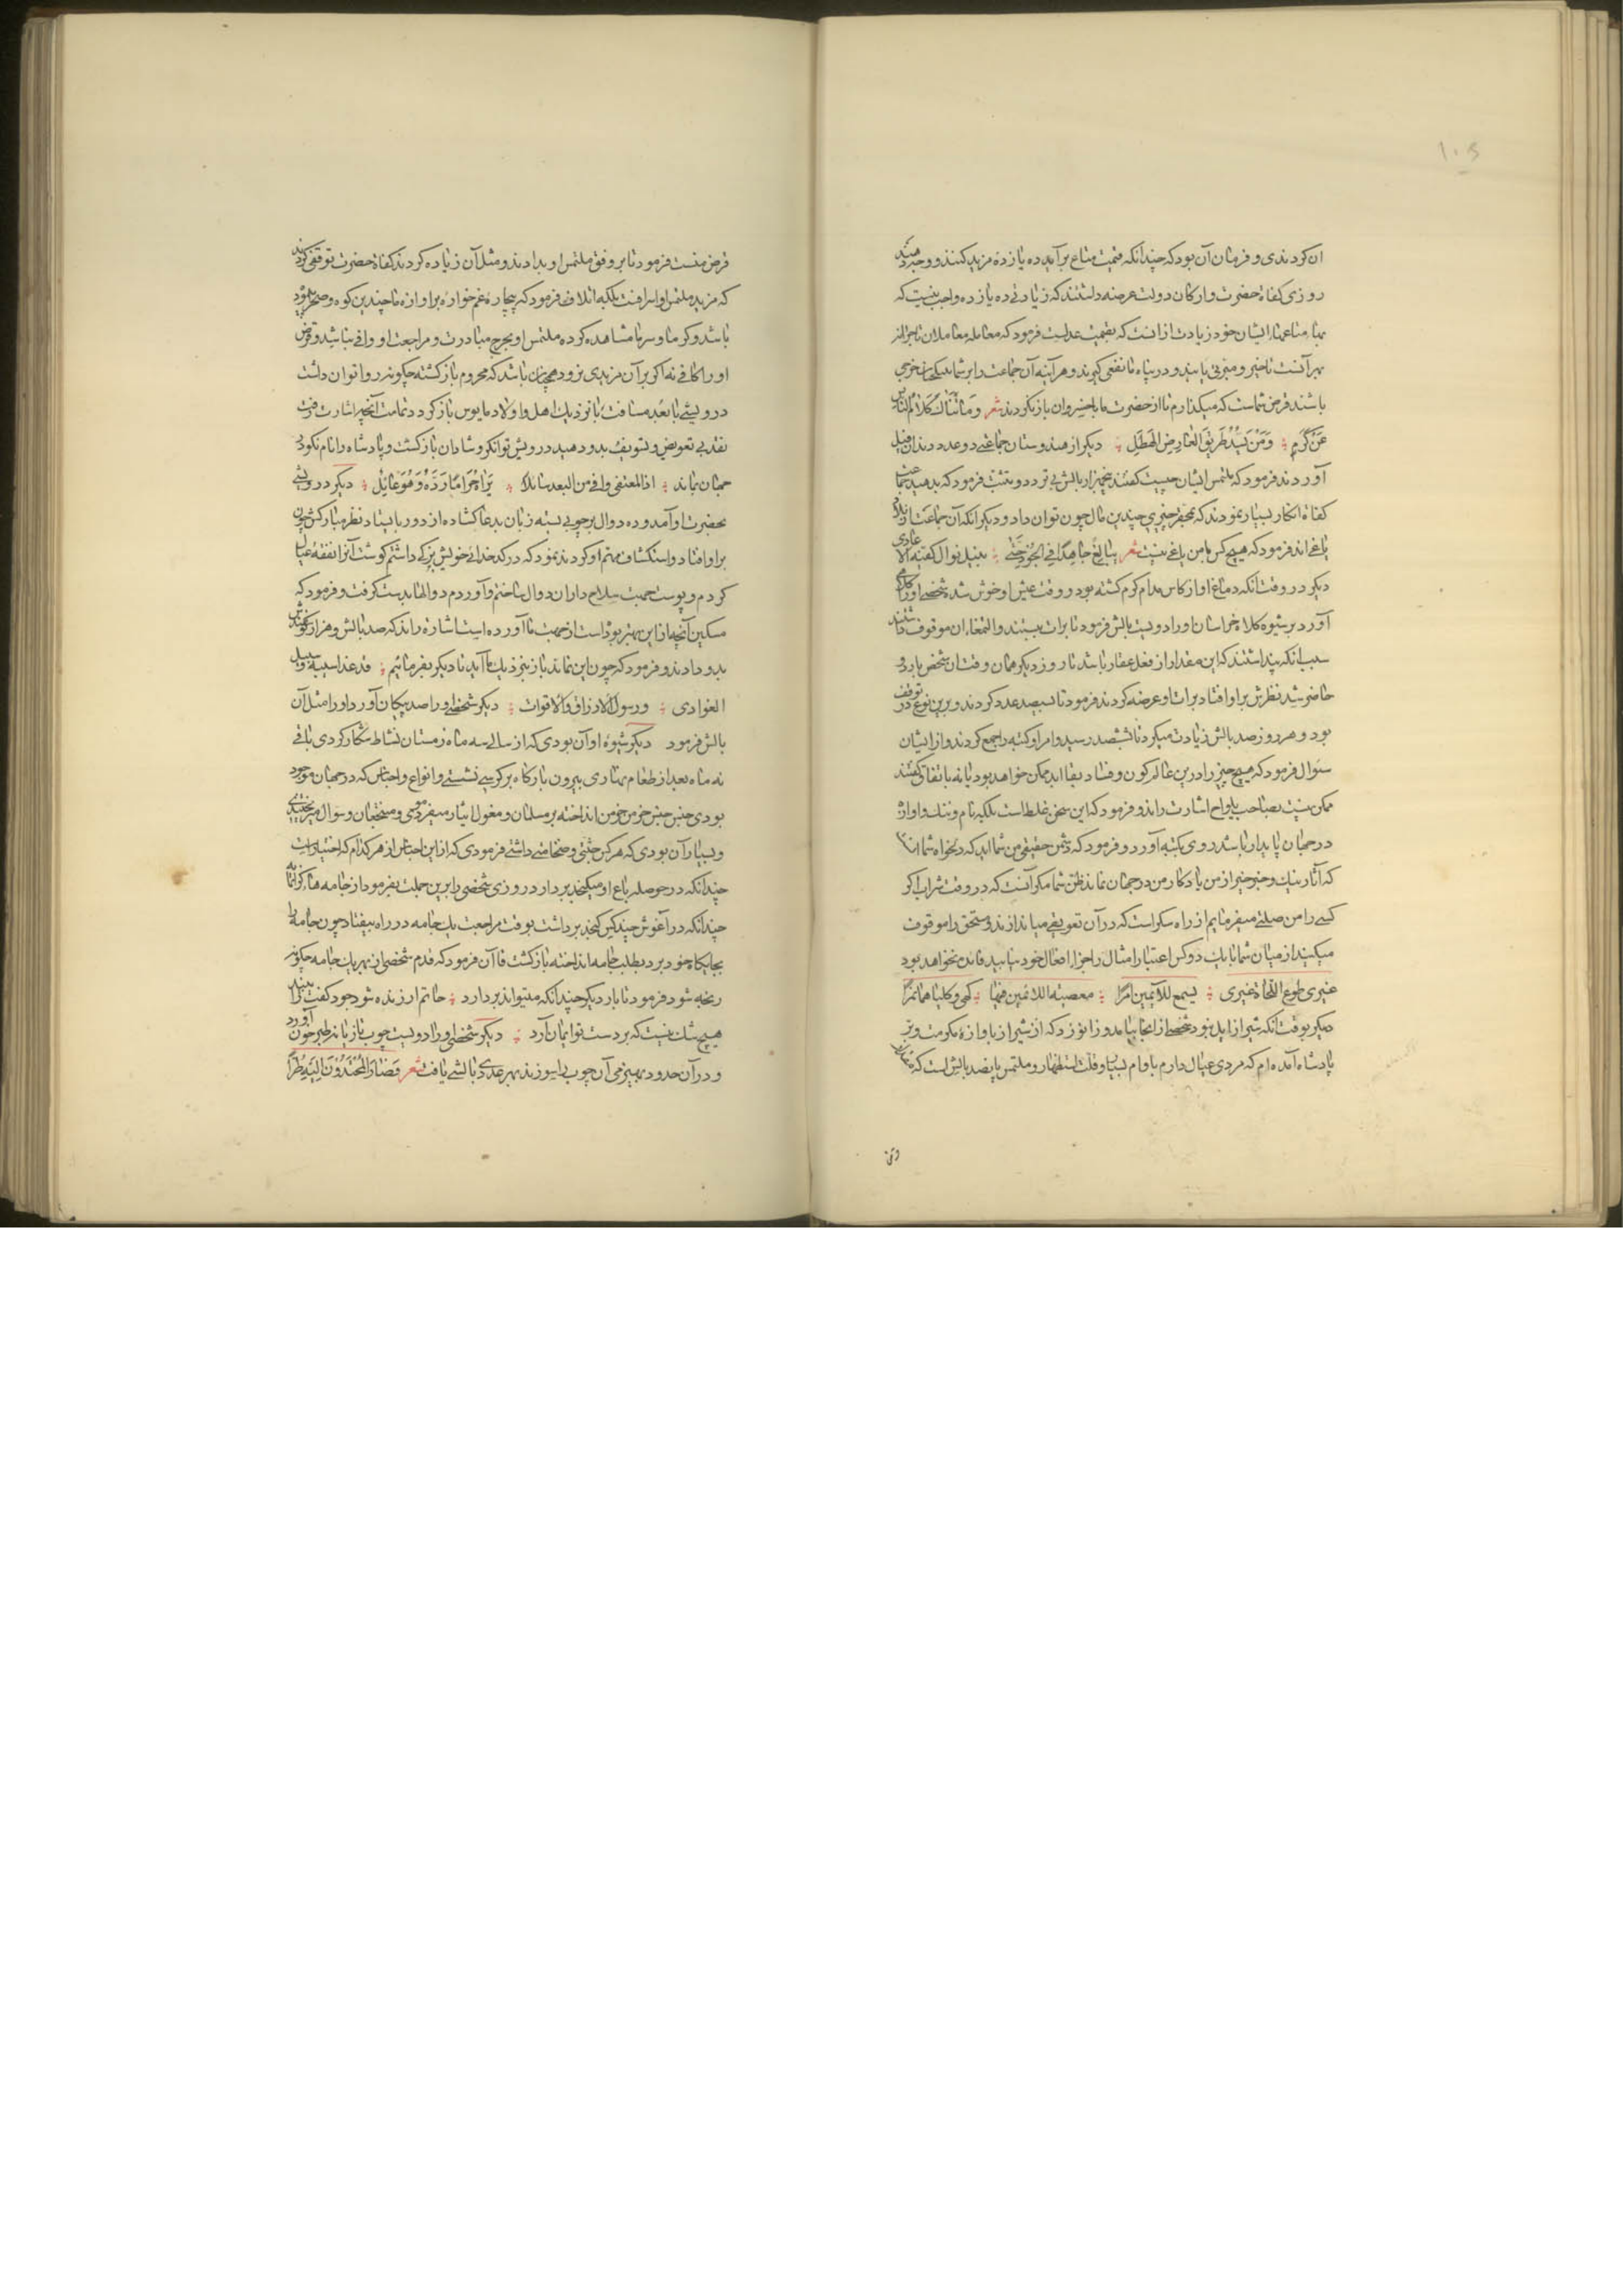 ۱۰۵
ان کردندی و فرمان آن بود که چندانکه قیمت متاع برآید ده یازده مزید کنند و وجه دهند
روزی کفاة حضرت و ارکان دولت عرضه داشتند که زیادتی ده یازده واجب نیست که
بهاء متاعها ایشان خود زیادت از آنست که بقیمت عدلست فرمود که معامله معاملان با خزانه
بهر آنست تا خیر و منفعتی یابند و در پناه ما نفعی گیرند و هر آینه آن جماعت را بر شما بیکجیان خرجی
باشند قرض شماست که میگذارم تا از حضرت ما با خسران باز نگردند شعر و ما ثناک کلام الناس
عن کرم و من یسد طریق العارض الهطل دیگر از هندوستان جماعتی دو عدد دندان فیل
آوردند فرمود که ملتمس ایشان چیست گفتند پنج هزار بالش بی تردد و تثبت فرمود که بدهید
کفاة انکار بسیار نمودند که بمحقر چیزی چندین مال چون توان داد و دیگر آنکه آن جماعت از بلاد
یاغی اند فرمود که هیچ کس با من یاغی نیست شعر یبالغ جاهدا فی الجود حتی ینیل نوال کفیه الاعادی
دیگر در وقت آنکه دماغ او از کاس مدام گرم گشته بود و وقت عیش او خوش شده شخصی او را کلاهی
آورد بر شیوه کلاه خراسان او را دویست بالش فرمود تا برات ببستند و التمغاء ان موقوف داشتند
سبب آنکه پنداشتند که این مقدار از فعل عقار باشد تا روز دیگر همان وقت ان شخص باردو
حاضر شد نظرش بر او افتاد برات او عرضه کردند فرمود تا بسیصد عدد کردند و برین نوع در توقف
بود و هر روز صد بالش زیادت میکرد تا بششصد رسید و امرا و کتبه را جمع کردند و از ایشان
سؤال فرمود که هیچ چیز را درین عالم کون و فساد بقا ابد ممکن خواهد بود یا نه باتفاق گفتند
ممکن نیست بصاحب یلواج اشارت راند و فرمود که این سخن غلط است بلکه نام و ننک و اوازه
در جهان پایدار باشد روی بکتبه آورد و فرمود که دشمن حقیقی من شما اید که دلخواه شما انست
که آثار نیک و خبر خیر از من یادگار من در جهان نماند ظن شما مگر آنست که در وقت شراب اگر
کسی را من صلتی میفرمایم از راه سکراست که در آن تعویقی می اندازند و مستحق را موقوف
میکنید از میان شما تا یک دو کس اعتبار امثال را جزاء افعال خود نیابید فائده نخواهد بود
غیری طوع اللحاة غیری یسمع للآئمین امرا معصیة اللائمین فیها کهی و کلیا هما
دیگر بوقت آنکه شیراز ایل نبود شخصی از انجا بیامد و زانو زد که از شیراز باوازه مکرمت و بر
پادشاه آمده ام که مردی عیال دارم با وام بسیار و قلت استظهار و ملتمس پانصد بالش است که مقدار
قرض منست فرمود تا بر وفق ملتمس او بدادند و مثل آن زیاده کردند کفاة حضرت توقفی کردند
که مزید ملتمس او اسرافست بلکه اتلاف فرمود که بیچاره غم خواره بر اوازه ما چندین کوه و صحرا پیموده
باشد و گرما و سرما مشاهده کرده ملتمس او بخرج مبادرت و مراجعت او وافی نباشد و قرض
او را کافی نه اگر بر آن مزیدی نرود همچنان باشد که محروم باز گشته چگونه روا توان داشت
درویشی با بعد مسافت تا نزدیک اهل و اولاد مایوس باز گردد تمامت آنچه اشارت رفت
نقد بی تعویض و تسویف بدو دهید درویش توانگر و شادان بازگشت و پادشاه را نام نکو در
جهان بماند اذا المعتفی وافی من البعد سائلا یراه حراما رده و هو عائل دیگر درویشی
بحضرت او آمد و ده دوال بر چوبی بسته زبان بدعا گشاده از دور بایستاد نظر مبارکش چون
بر او افتاد و استکشاف مهم او کردند نمود که در کدخدائی خویش بزکی داشتم گوشت آنرا نفقه عیال
کردم و پوست جهت سلاح داران دوال ساختم و آوردم دوالها بدست گرفت و فرمود که
مسکین آنچه از این بهتر بوداست از جهت ما آورده است اشارة راند که صد بالش و هزار گوسفند
بدو دادند و فرمود که چون این نماند باز بنزدیک ما آید تا دیگر بفرمائیم قد غدا سیبه و سیل
الغوادی و رسول الارزاق و الاقوات دیگر شخصی او را صد پیکان آورد او را مثل آن
بالش فرمود دیگر شیوه او آن بودی که از سالی سه ماه زمستان نشاط شکار کردی باقی
نه ماه بعد از طعام نهاری بیرون بارگاه بر کرسی نشستی و انواع و اجناس که در جهان موجود
بودی جنس جنس خرمن خرمن انداخته بر مسلمان و مغول ایثار میفرمودی و منتجعان و سوال میبخشیدی
و بسیار آن بودی که هر کس جثتی و ضخامتی داشتی فرمودی که از این اجناس از هر کدام که اختیار اوست
چندانکه در حوصله باع او میگنجد بردارد روزی شخصی را برین جملت بفرمود از جامه هاء گرانمایه
چندانکه در آغوش چند کس گنجد برداشت بوقت مراجعت یک جامه در راه بیفتاد چون جامها
بجایگاه خود برد بطلب جامه انداخته بازگشت قاآن فرمود که قدم شخصی از بهر یک جامه چگونه
رنجه شود فرمود تا بار دیگر چندانکه میتواند بردارد حاتم ار زنده شود جود کفت را بیند
هیچ شک نیست که بر دست تو ایمان آرد دیگر شخصی او را دویست چوب تازیانه طبرخون آورد
و در آن حدود بهیزمی آن چوب را بسوزند بهر عددی بالشی یافت شعر فصار المجتدون الیه طرا
وقت